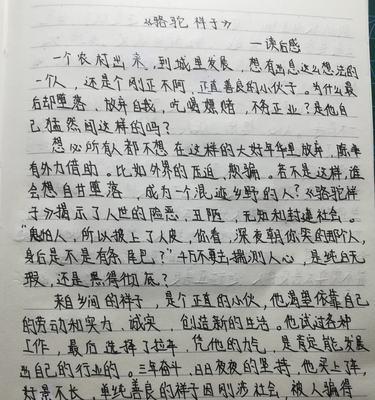 《骆驼祥子》
—读后感
一个农村出来，到城里发展，想有出息这么想法的
一个人，还是个刚正不阿，正直善良的小伙子。为什么最
后却堕落、放弃自我，吃喝嫖赌，不务正业？是他自
己猛然间这样的吗？
想必所有人都不想在这样的大好年华里放弃，除非
有外力借助。比如外界的压迫，欺骗。若不是这样，谁
会想自甘堕落，成为一个混迹乡野的人？《骆驼祥
子》揭示了人世的险恶，丑陋，无知和封建社会。
"鬼怕人，所以披上了人皮，你看，深夜朝你哭的那个人，
身后是不是有条尾巴？"千万不要去揣测人心，是纯白无
瑕，还是黑得彻底？
来自乡间的祥子，是个正直的小伙，他渴望依靠自己
的劳动和实力、诚实，创造新的生活。他试过各种
工作，最后选择了拉车，凭他的力气，是肯定能发展
出自己的行业的。三年奋斗，日日夜夜的坚持，他买上了车，
好景不长，单纯善良的祥子因刚涉社会，被人骗得